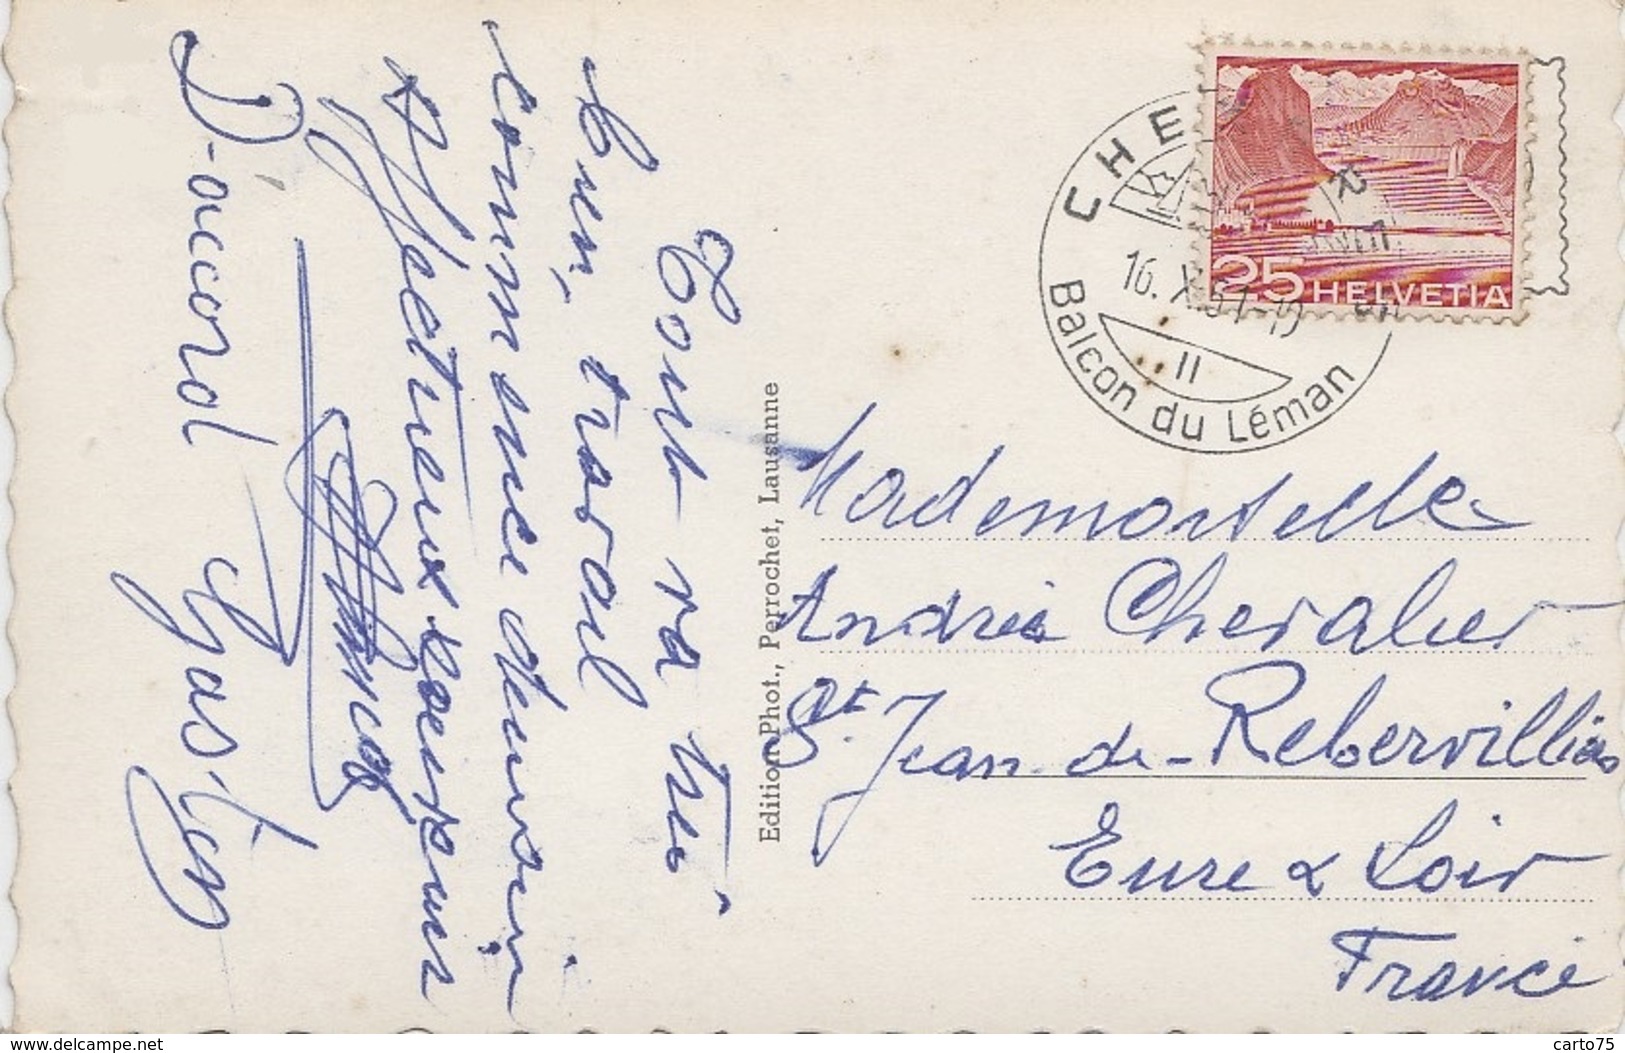 Tout va très
bien, travail
commence demain
Affectueux
D'accord
Gaston
Edition Phot., Perrochet, Lausanne
25 HELVETIA
16. X. 51-19
II
Balcon du Léman
Mademoiselle
Andrée Chevalier
St. Jean-de-Rebervilliers
Eure & Loir
France
www.delcampe.net
carto75